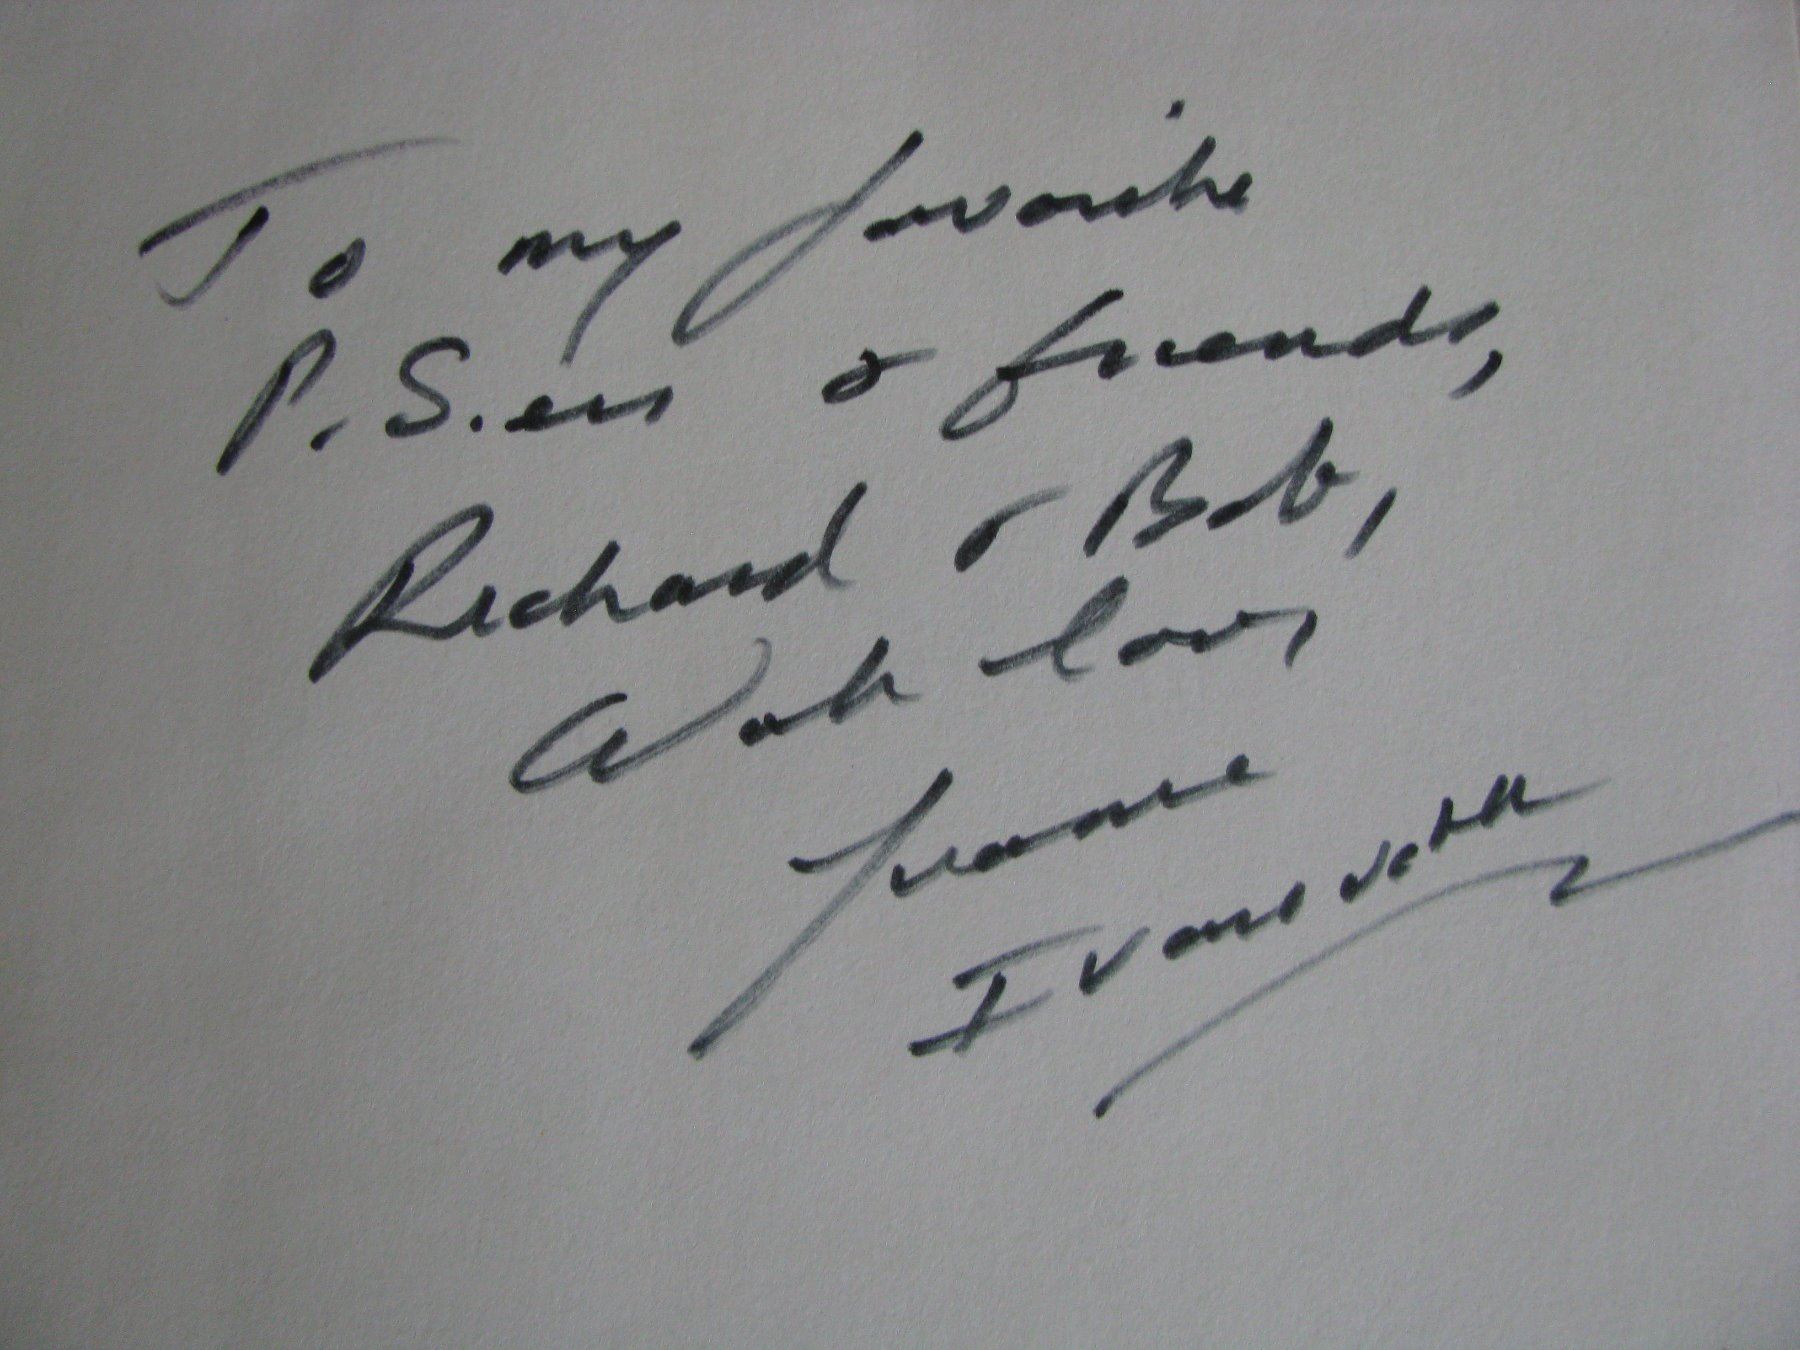 To my favorite
P.S.ers & friends,
Richard & Bob,
With love,